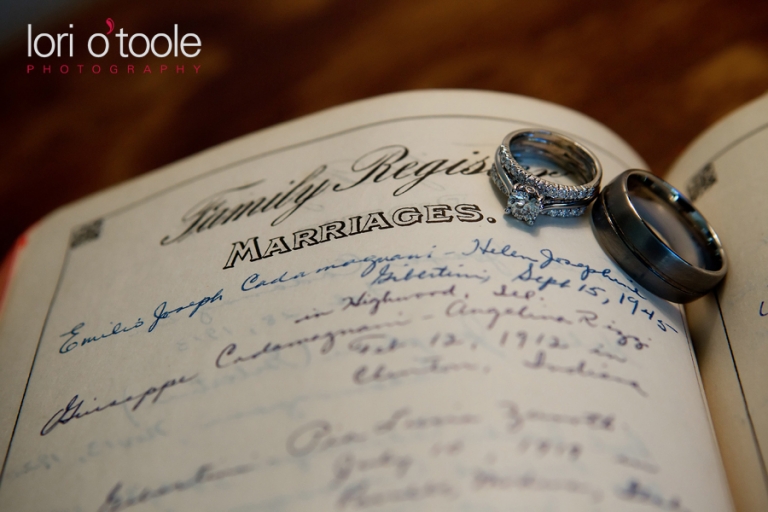 lori o'toole
PHOTOGRAPHY
Family Regis
MARRIAGES.
Emilio Joseph Cadamagnani - Helen Josephine
Gibertini, Sept 15, 1945
in Highwood, Ill.
Giuseppe Cadamagnani - Angelina Rizzi
Feb 12, 1912 in
Clinton, Indiana
Pia
July